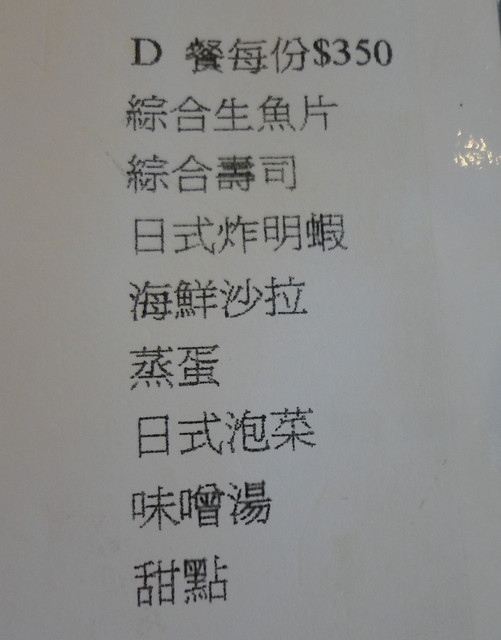 D 餐每份$350
綜合生魚片
綜合壽司
日式炸明蝦
海鮮沙拉
蒸蛋
日式泡菜
味噌湯
甜點